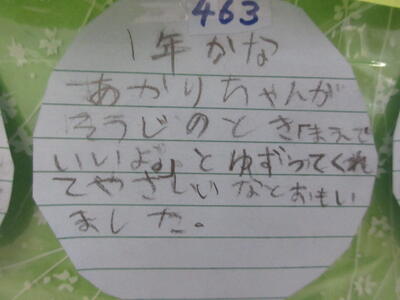 463
1年かな
あかりちゃんが
そうじのとき「まえで
いいよ。」とゆずってくれ
てやさしいなとおもい
ました。